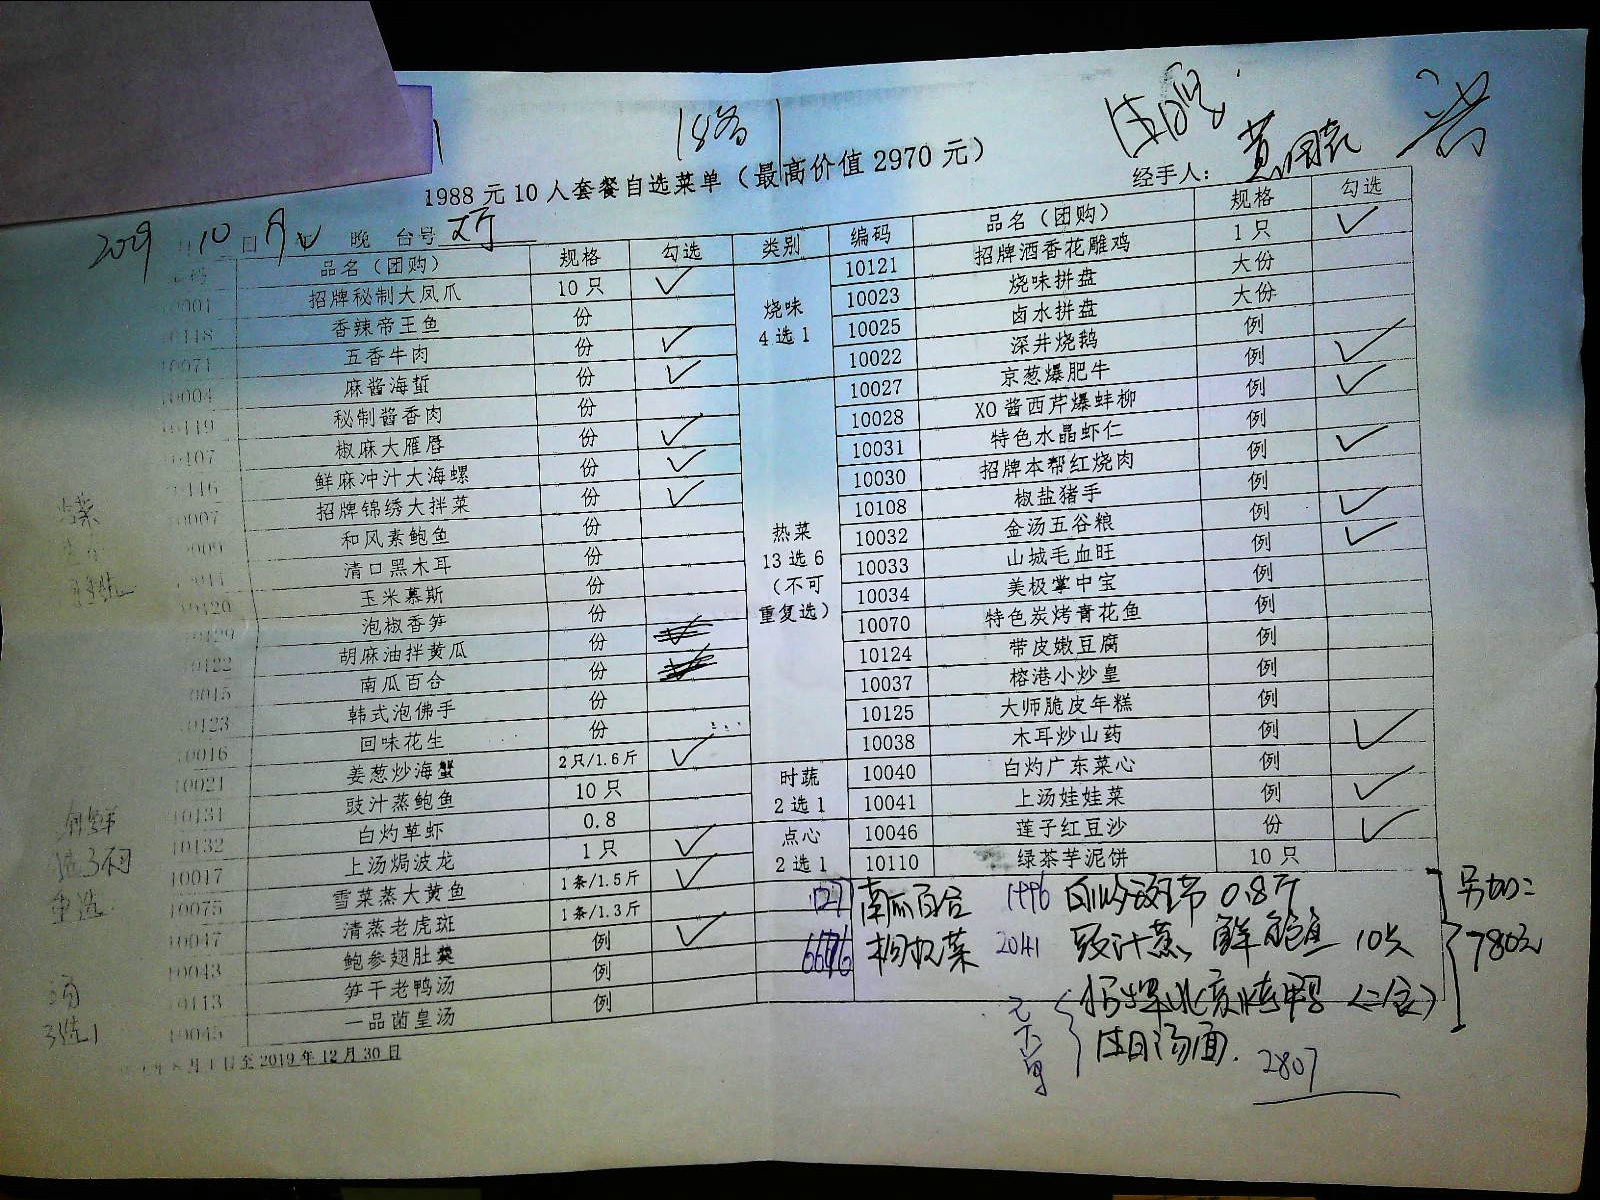 18
1988元10人套餐自选菜单（最高价值2970元）
经手人：
10 晚 台号
品名（团购） 规格 勾选 类别 编码 品名（团购） 规格 勾选
招牌秘制大凤爪 10只 ✓
香辣帝王鱼 份
五香牛肉 份 ✓
麻酱海蜇 份 ✓
秘制酱香肉 份
椒麻大雁唇 份 ✓
鲜麻冲汁大海螺 份 ✓
招牌锦绣大拌菜 份 ✓
和风素鲍鱼 份
清口黑木耳 份
玉米慕斯 份
泡椒香笋 份
胡麻油拌黄瓜 份
南瓜百合 份
韩式泡佛手 份
回味花生 份
10016 姜葱炒海蟹 2只/1.6斤 ✓
10021 豉汁蒸鲍鱼 10只
10131 白灼草虾 0.8
10132 上汤焗波龙 1只 ✓
10017 雪菜蒸大黄鱼 1条/1.5斤 ✓
10075 清蒸老虎斑 1条/1.3斤
10047 鲍参翅肚羹 例 ✓
10043 笋干老鸭汤 例
10113 一品菌皇汤 例
10045
烧味
4选1
10121 招牌酒香花雕鸡 1只 ✓
10023 烧味拼盘 大份
10025 卤水拼盘 大份
10022 深井烧鹅 例
热菜
13选6
（不可
重复选）
10027 京葱爆肥牛 例 ✓
10028 XO酱西芹爆蚌柳 例 ✓
10031 特色水晶虾仁 例
10030 招牌本帮红烧肉 例 ✓
10108 椒盐猪手 例
10032 金汤五谷粮 例 ✓
10033 山城毛血旺 例 ✓
10034 美极掌中宝 例
10070 特色炭烤青花鱼 例
10124 带皮嫩豆腐 例
10037 榕港小炒皇 例
10125 大师脆皮年糕 例
10038 木耳炒山药 例 ✓
时蔬
2选1
10040 白灼广东菜心 例
10041 上汤娃娃菜 例 ✓
点心
2选1
10046 莲子红豆沙 份 ✓
10110 绿茶芋泥饼 10只
南瓜百合 1996 0.8斤
枸杞菜 2041 豉汁蒸鲜鲍鱼 10只
另加：
780元
生日汤面
2807
汤
3选1
8月1日至2019年12月30日